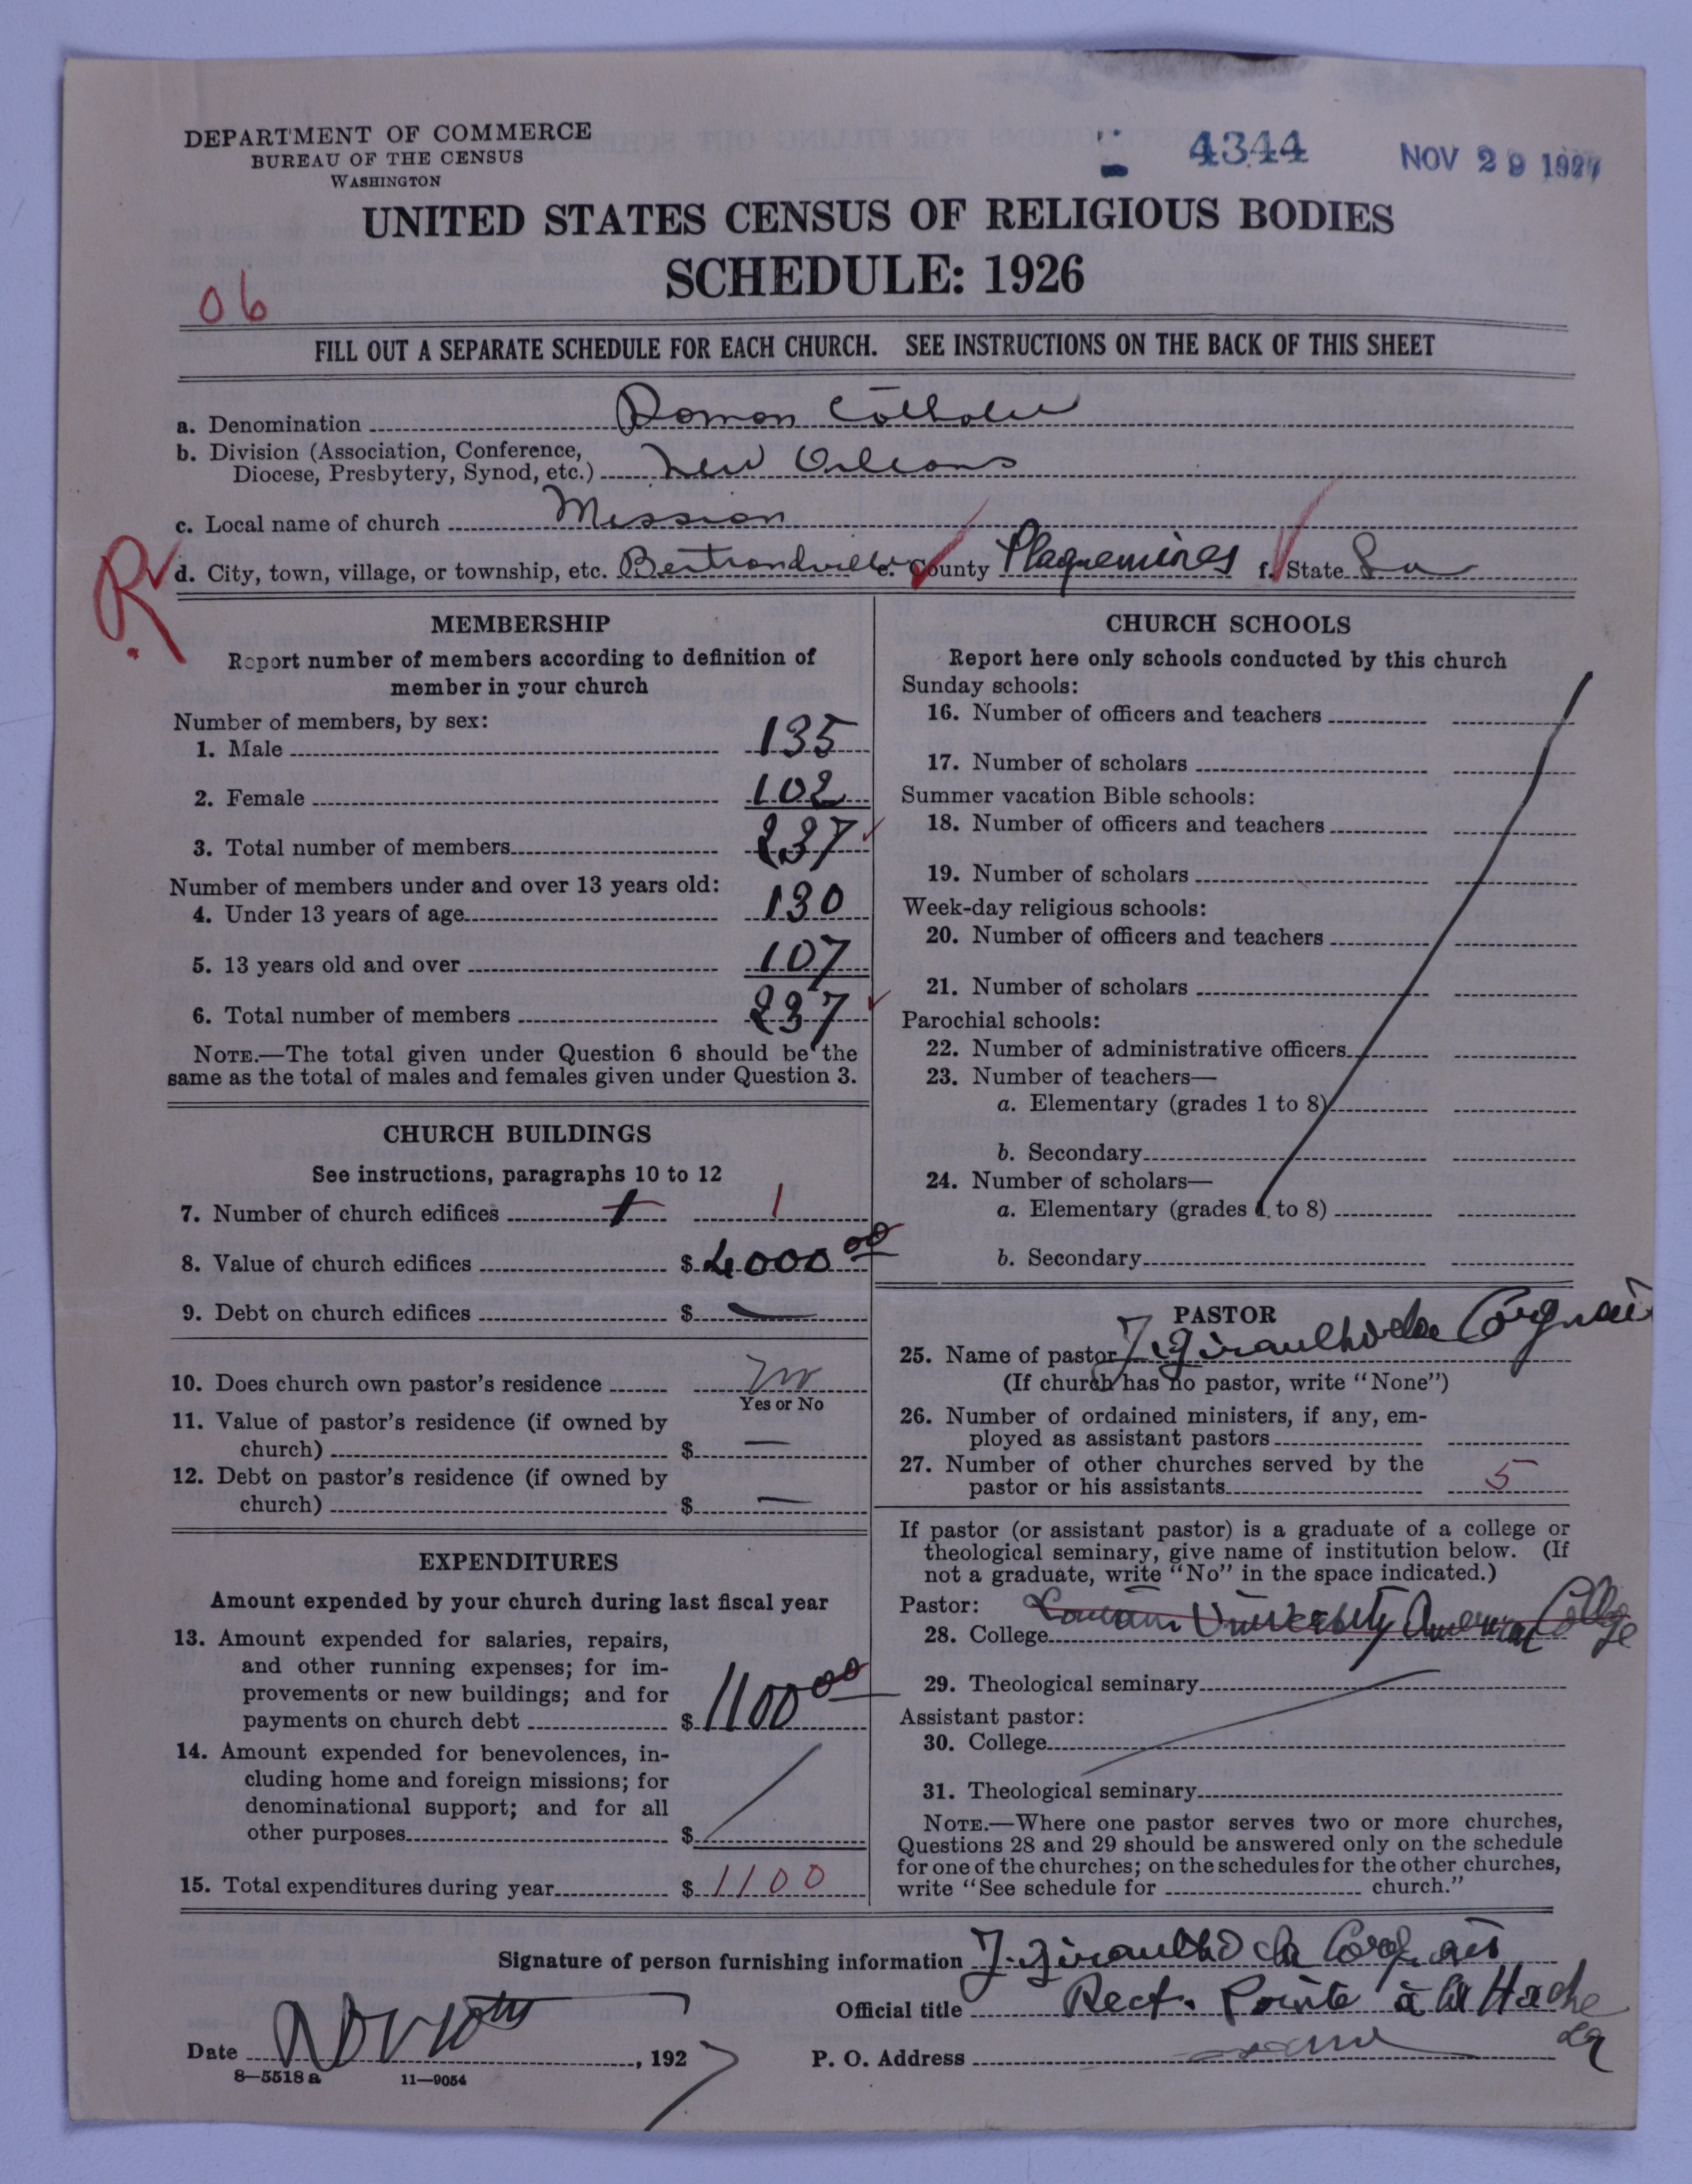 DEPARTMENT OF COMMERCE
BUREAU OF THE CENSUS
WASHINGTON
4344
NOV 29 1927
UNITED STATES CENSUS OF RELIGIOUS BODIES
SCHEDULE: 1926
06
FILL OUT A SEPARATE SCHEDULE FOR EACH CHURCH. SEE INSTRUCTIONS ON THE BACK OF THIS SHEET
a. Denomination Roman Catholic
b. Division (Association, Conference,
Diocese, Presbytery, Synod, etc.) New Orleans
c. Local name of church Mission
R
d. City, town, village, or township, etc. Bertrandville e. County Plaquemines f. State La
MEMBERSHIP
Report number of members according to definition of
member in your church
Number of members, by sex:
1. Male 135
2. Female 102
3. Total number of members 237
Number of members under and over 13 years old:
4. Under 13 years of age 130
5. 13 years old and over 107
6. Total number of members 237
NOTE.—The total given under Question 6 should be the
same as the total of males and females given under Question 3.
CHURCH BUILDINGS
See instructions, paragraphs 10 to 12
7. Number of church edifices 1 1
8. Value of church edifices $ 4000 00
9. Debt on church edifices $ —
10. Does church own pastor's residence No
Yes or No
11. Value of pastor's residence (if owned by
church) $ —
12. Debt on pastor's residence (if owned by
church) $ —
EXPENDITURES
Amount expended by your church during last fiscal year
13. Amount expended for salaries, repairs,
and other running expenses; for im-
provements or new buildings; and for
payments on church debt $ 1100 00
14. Amount expended for benevolences, in-
cluding home and foreign missions; for
denominational support; and for all
other purposes $
15. Total expenditures during year $ 1100
CHURCH SCHOOLS
Report here only schools conducted by this church
Sunday schools:
16. Number of officers and teachers
17. Number of scholars
Summer vacation Bible schools:
18. Number of officers and teachers
19. Number of scholars
Week-day religious schools:
20. Number of officers and teachers
21. Number of scholars
Parochial schools:
22. Number of administrative officers
23. Number of teachers—
a. Elementary (grades 1 to 8)
b. Secondary
24. Number of scholars—
a. Elementary (grades 1 to 8)
b. Secondary
PASTOR
25. Name of pastor
(If church has no pastor, write "None")
26. Number of ordained ministers, if any, em-
ployed as assistant pastors
27. Number of other churches served by the
pastor or his assistants 5
If pastor (or assistant pastor) is a graduate of a college or
theological seminary, give name of institution below. (If
not a graduate, write "No" in the space indicated.)
Pastor:
28. College Louvain University American College
29. Theological seminary
Assistant pastor:
30. College
31. Theological seminary
NOTE.—Where one pastor serves two or more churches,
Questions 28 and 29 should be answered only on the schedule
for one of the churches; on the schedules for the other churches,
write "See schedule for church."
Signature of person furnishing information
Official title Rect. Pointe à la Hache
La
Date Nov 10th, 1927
P. O. Address same
8—5518 a 11—9054